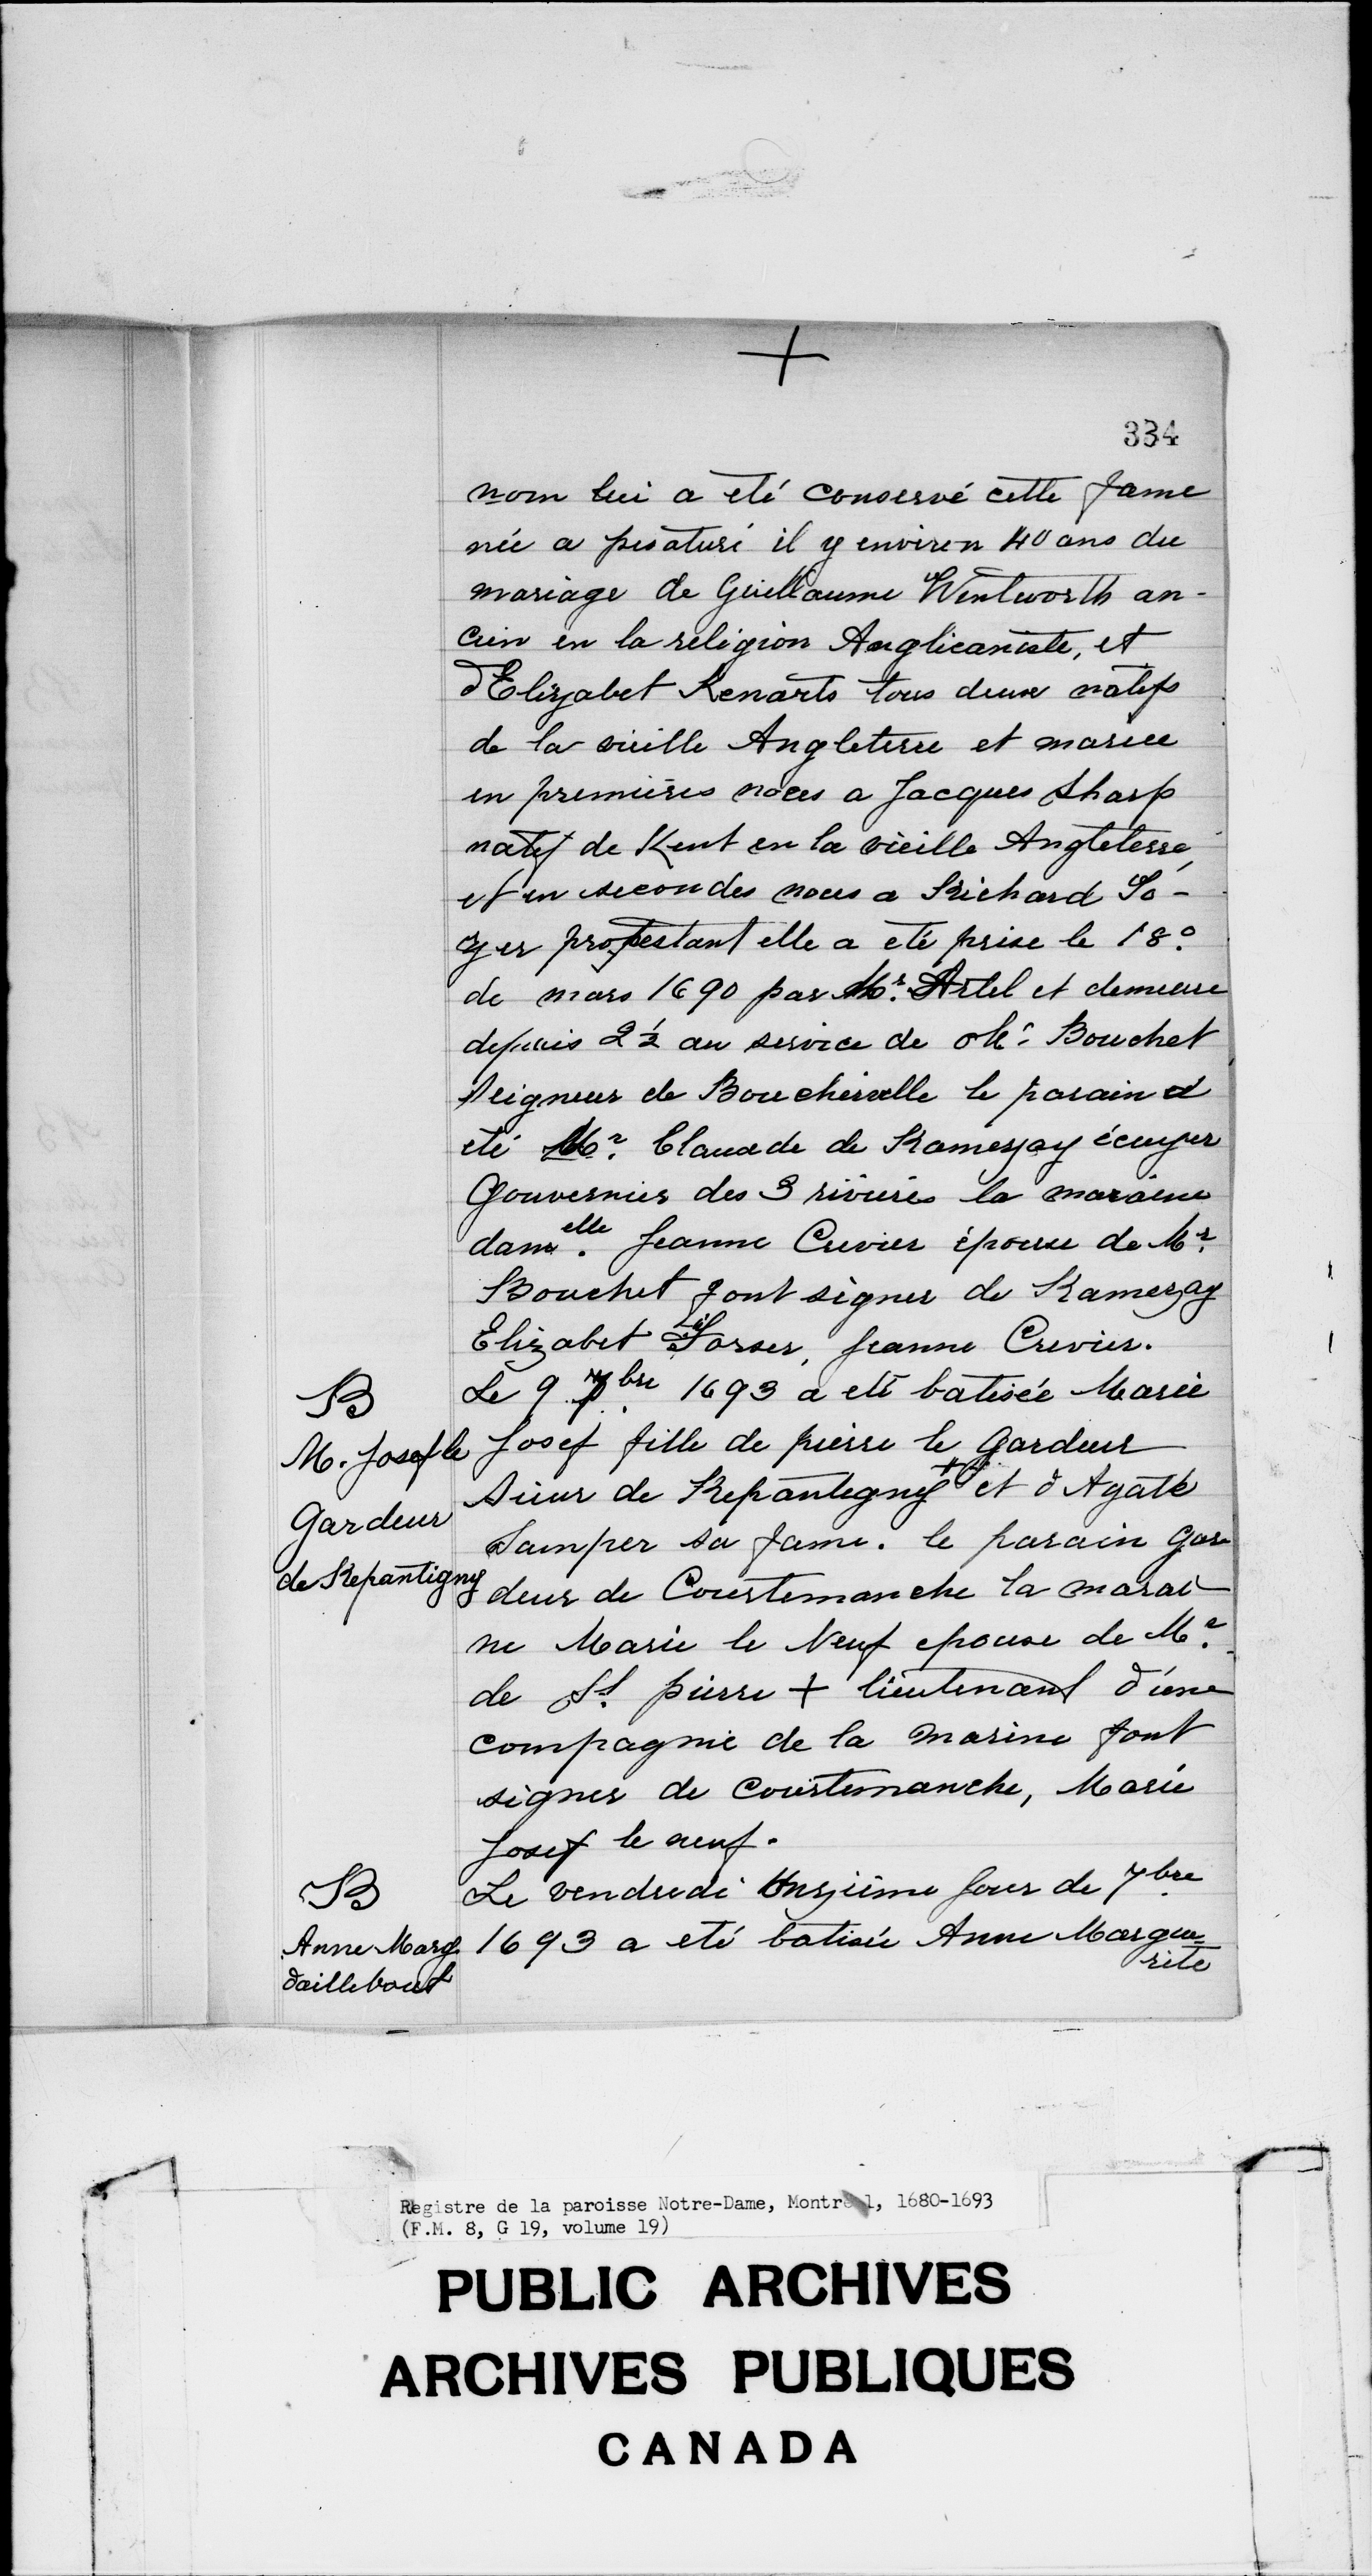 334
nom lui a eté conservé cette fame
née a pisaturé il y environ 40 ans du
mariage de Guillaume Wentworth an-
cien en la religion Anglicaniste, et
d'Elizabet Kenarts tous deux natifs
de la vieille Angleterre et mariee
en premières noces a Jacques Sharp
natif de Kent en la vieille Angleterre,
et en secondes noces a Richard To-
zer protestant elle a eté prise le 18e
de mars 1690 par Mr. Artel et demeure
depuis 2½ au service de Mr. Bouchet
Seigneur de Boucherville le parain a
eté Mr. Claude de Ramezay écuyer
Gouvernier des 3 rivieres la maraine
damelle. Jeanne Crevier épouse de Mr.
Bouchet font signer de Ramezay
Elizabet, Jeanne Crevier.
B
Le 9 7bre 1693 a eté batisée Marie
M. Josef le
Josef fille de pierre le gardeur
Gardeur
Sieur de Repantegny + et d'Agate
de Repantigny
Samper sa fame. le parain Gar
deur de Courtemanche la marai-
ne Marie le Neuf epouse de Mr.
de St. pierre + lieutenant d'une
compagnie de la marine font
signer de Courtemanche, Marie
Josef le neuf.
B
Le vendredi Onzième Jour de 7bre
Anne Marg.
1693 a eté batisée Anne Margue-
rite
daillebout
Registre de la paroisse Notre-Dame, Montréal, 1680-1693
(F.M. 8, G 19, volume 19)
PUBLIC ARCHIVES
ARCHIVES PUBLIQUES
CANADA